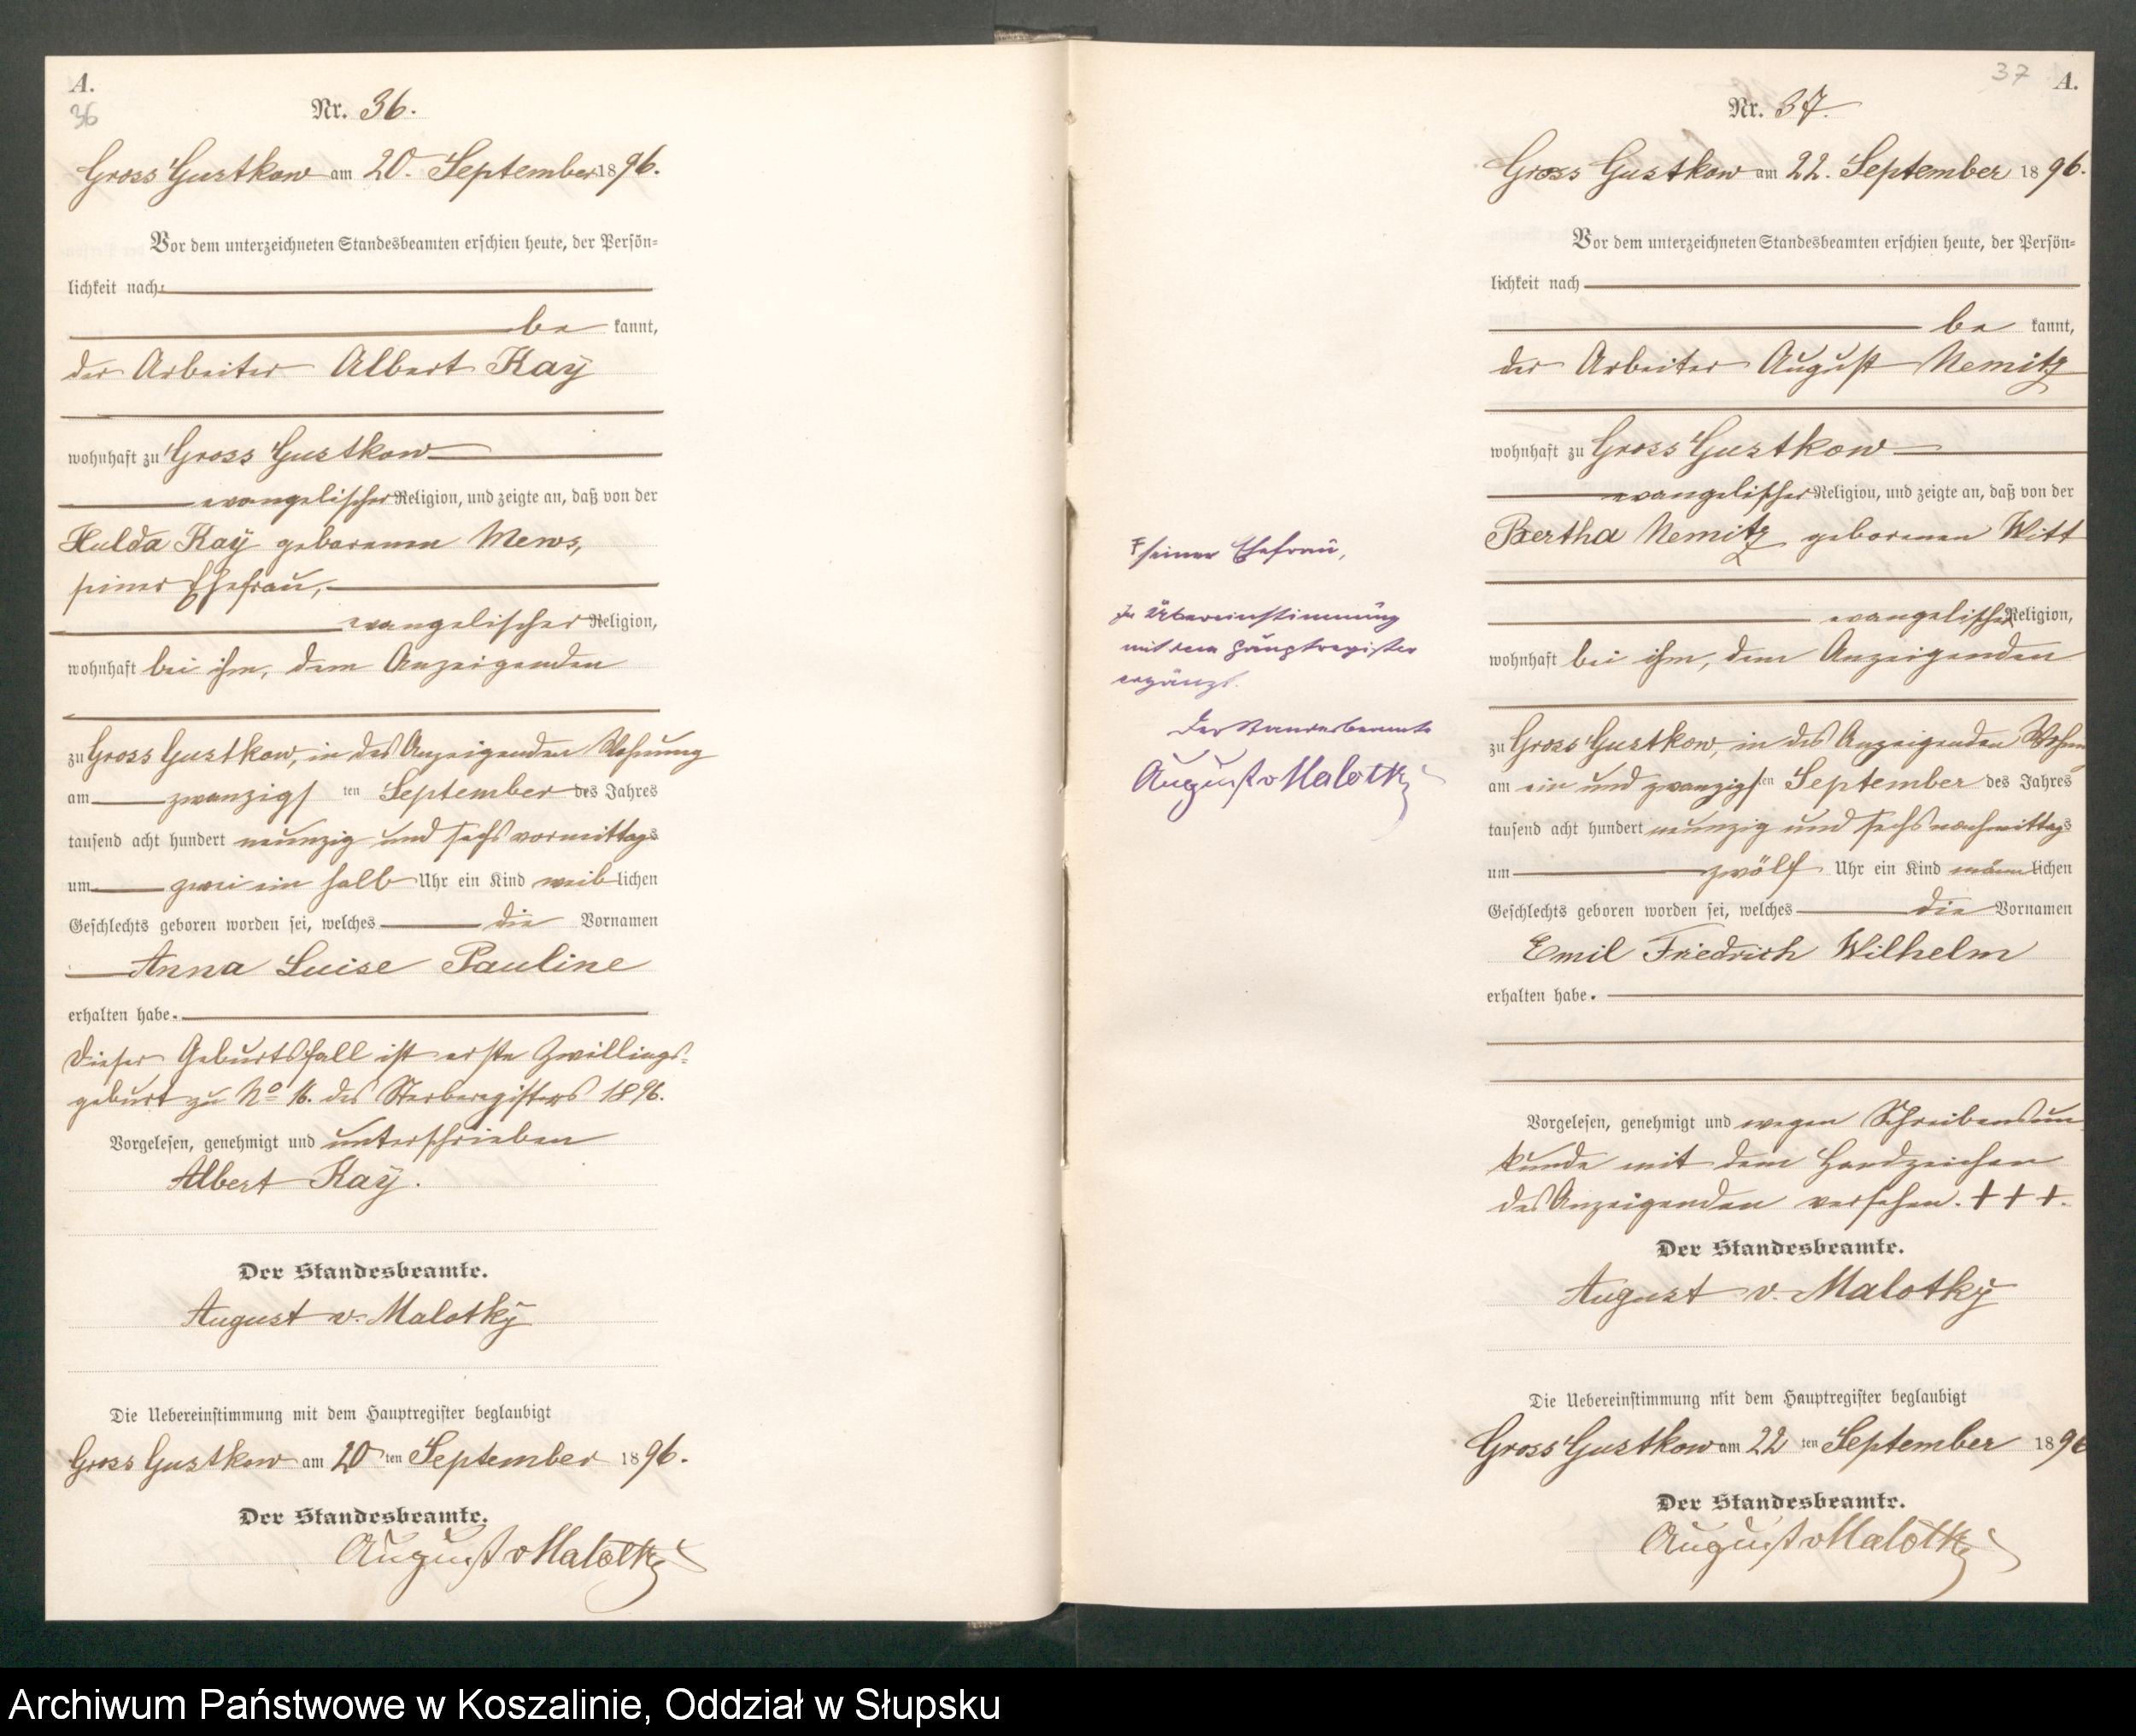 A.
36
Nr. 36.
Gross Gustkow am 20. September 1896.
Vor dem unterzeichneten Standesbeamten erschien heute, der Persön=
lichkeit nach
be kannt,
der Arbeiter Albert Kaÿ
wohnhaft zu Gross Gustkow
evangelischer Religion, und zeigte an, daß von der
Hulda Kaÿ geborenen Mews,
seiner Ehefrau,
evangelischer Religion,
wohnhaft bei ihm, dem Anzeigenden
zu Gross Gustkow, in des Anzeigenden Wohnung
am zwanzigs ten September des Jahres
tausend acht hundert neunzig und sechs vormittags
um zwei ein halb Uhr ein Kind weiblichen
Geschlechts geboren worden sei, welches die Vornamen
Anna Luise Pauline
erhalten habe.
Dieser Geburtsfall ist erste Zwillings=
geburt zu No 16. des Sterberegisters 1896.
Vorgelesen, genehmigt und unterschrieben
Albert Kaÿ.
Der Standesbeamte.
August v. Malotkÿ
Die Uebereinstimmung mit dem Hauptregister beglaubigt
Gross Gustkow am 20 ten September 1896.
Der Standesbeamte.
August v Malotky
37
A.
Nr. 37.
Gross Gustkow am 22. September 1896.
Vor dem unterzeichneten Standesbeamten erschien heute, der Persön=
lichkeit nach
be kannt,
der Arbeiter August Nemitz
wohnhaft zu Gross Gustkow
evangelischer Religion, und zeigte an, daß von der
Bertha Nemitz geborenen Witt
evangelischer Religion,
wohnhaft bei ihm, dem Anzeigenden
zu Gross Gustkow, in des Anzeigenden Wohn
am ein und zwanzigs ten September des Jahres
tausend acht hundert neunzig und sechs nachmittags
um zwölf Uhr ein Kind männlichen
Geschlechts geboren worden sei, welches die Vornamen
Emil Friedrich Wilhelm
erhalten habe.
Vorgelesen, genehmigt und wegen Schreibensun
kunde mit dem Handzeichen
des Anzeigenden versehen. + + +.
Der Standesbeamte.
August v. Malotkÿ
Die Uebereinstimmung mit dem Hauptregister beglaubigt
Gross Gustkow am 22 ten September 1896
Der Standesbeamte.
August v Malotky
seiner Ehefrau,
In Übereinstimmung
mit dem Hauptregister
ergänzt.
Der Standesbeamte
August v Malotky
Archiwum Państwowe w Koszalinie, Oddział w Słupsku